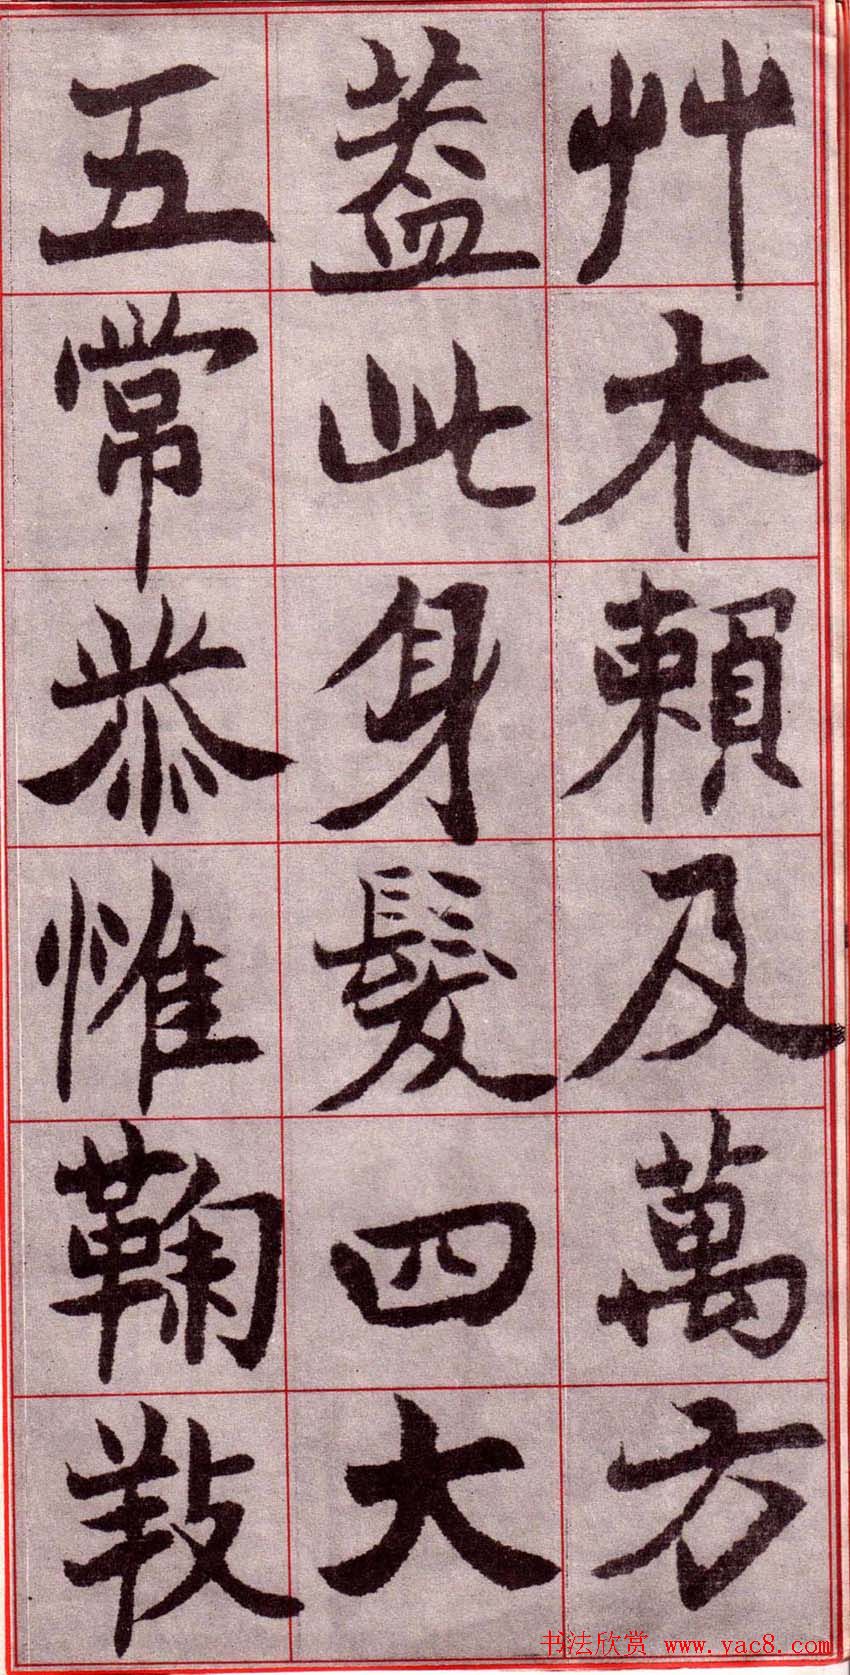 艸木賴及萬方
蓋此身髮四大
五常恭惟鞠養
书法欣赏 www.yac8.com